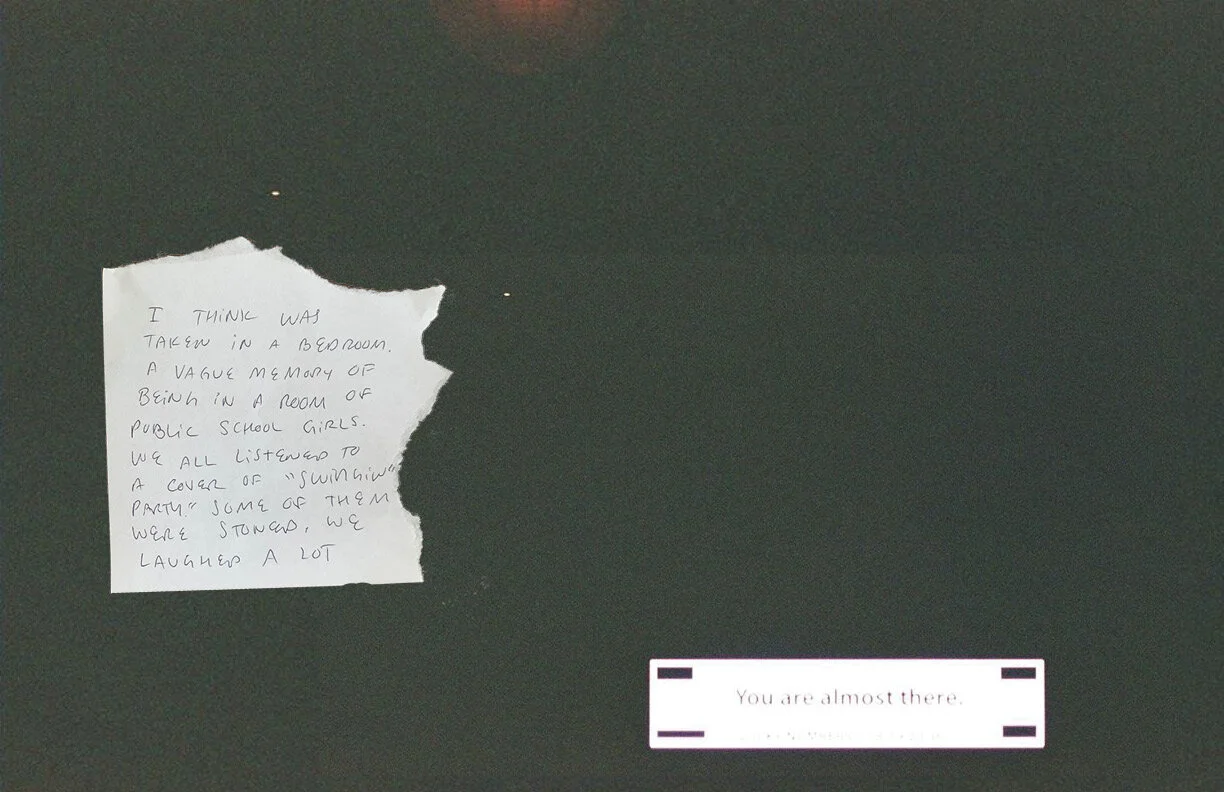 I THINK WAS
TAKEN IN A BEDROOM.
A VAGUE MEMORY OF
BEING IN A ROOM OF
PUBLIC SCHOOL GIRLS.
WE ALL LISTENED TO
A COVER OF "SWINGIN'
PARTY." SOME OF THEM
WERE STONED, WE
LAUGHED A LOT
You are almost there.